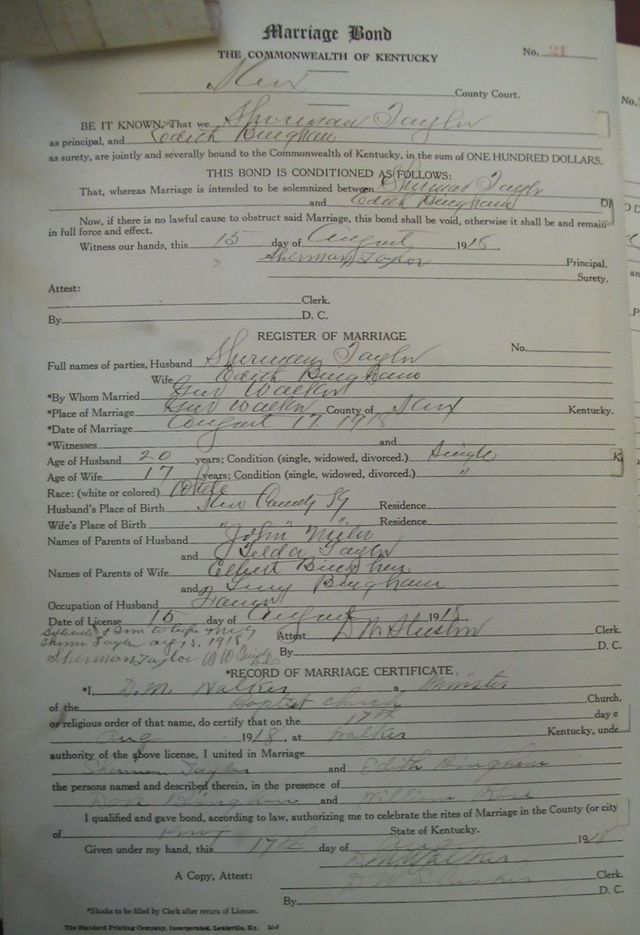 Marriage Bond
THE COMMONWEALTH OF KENTUCKY
No. 21
Knox County Court.
BE IT KNOWN, That we Sherman Taylor
as principal, and Edith Bingham
as surety, are jointly and severally bound to the Commonwealth of Kentucky, in the sum of ONE HUNDRED DOLLARS.
THIS BOND IS CONDITIONED AS FOLLOWS:
That, whereas Marriage is intended to be solemnized between Sherman Taylor
and Edith Bingham
Now, if there is no lawful cause to obstruct said Marriage, this bond shall be void, otherwise it shall be and remain
in full force and effect.
Witness our hands, this 15 day of August 1918.
Sherman Taylor Principal.
Surety.
Attest:
Clerk.
By D. C.
REGISTER OF MARRIAGE
No.
Full names of parties, Husband Sherman Taylor
Wife Edith Bingham
*By Whom Married Walker
*Place of Marriage Walker County of Knox Kentucky.
*Date of Marriage August 17 1918
*Witnesses and
Age of Husband 20 years; Condition (single, widowed, divorced.) Single
Age of Wife 17 years; Condition (single, widowed, divorced.) "
Race: (white or colored) White
Husband's Place of Birth Knox County Ky Residence
Wife's Place of Birth " " Residence
Names of Parents of Husband "John"
and Taylor
Names of Parents of Wife Elbert Bingham
and Bingham
Occupation of Husband Farmer
Date of License 15 day of August 1918
Attest Clerk.
Sherman Taylor By
*RECORD OF MARRIAGE CERTIFICATE.
*I, D. M. Walker a Minister
of the Baptist Church Church.
or religious order of that name, do certify that on the 17th day
Aug 1918, at Walker Kentucky, unde
authority of the above license, I united in Marriage
Sherman Taylor and Edith Bingham
the persons named and described therein, in the presence of
Bingham and William
I qualified and gave bond, according to law, authorizing me to celebrate the rites of Marriage in the County (or city
of Knox State of Kentucky.
Given under my hand, this 17th day of Aug 1918
D. M. Walker
A Copy, Attest: Clerk.
By D. C.
*Blanks to be filled by Clerk after return of License.
The Standard Printing Company, Incorporated, Louisville, Ky.